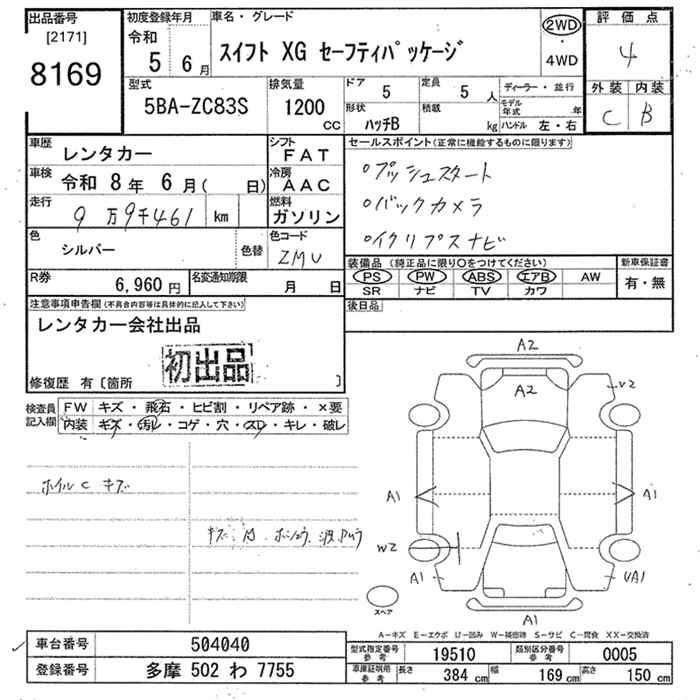 出品番号 [2171] 8169
初度登録年月 令和 5 6 月
車名・グレード スイフト XG セーフティパッケージ
2WD ・ 4WD
評価点 4
外装 内装
C B
型式 5BA-ZC83S
排気量 1200 cc
ドア 5 定員 5 人
形状 ハッチB 積載 kg
ディーラー・並行
モデル年式 年
ハンドル 左・右
車歴 レンタカー
シフト FAT
車検 令和 8 年 6 月( 日)
冷房 AAC
走行 9 万9千461 km
燃料 ガソリン
色 シルバー 色替
色コード ZMU
R券 6,960 円 名変通知期限 月 日
セールスポイント(正常に機能するものに限ります)
○プッシュスタート
○バックカメラ
○イクリプスナビ
装備品(純正品に限り○をつけてください)
PS PW ABS エアB AW
SR ナビ TV カワ
新車保証書 有・無
後日品
注意事項申告欄(不具合内容等は具体的に記入して下さい)
レンタカー会社出品
初出品
修復歴 有〔箇所 〕
検査員記入欄
FW キズ・飛石・ヒビ割・リペア跡・×要
内装 キズ・汚レ・コゲ・穴・スレ・キレ・破レ
ホイルC キズ
A2
A2
V2
A1 A1
W2
A1 UA1
A1
スペア
A-キズ E-エクボ U-凹み W-補修跡 S-サビ C-腐食 XX-交換済
車台番号 504040
登録番号 多摩 502 わ 7755
型式指定番号 参考 19510 類別区分番号 参考 0005
車庫証明用 参考 長さ 384 cm 幅 169 cm 高さ 150 cm